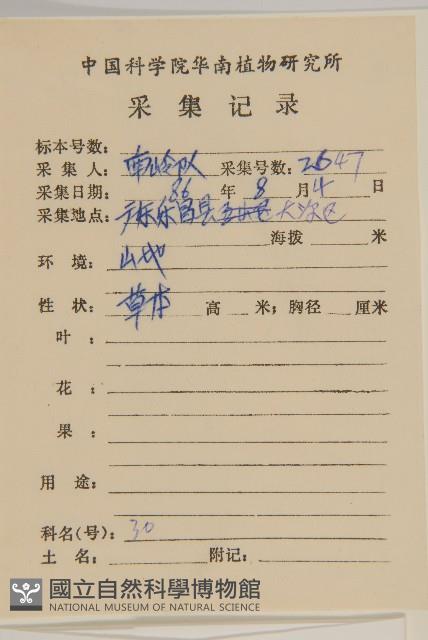 中国科学院华南植物研究所
采集记录
标本号数：
采集人：南岭队 采集号数：2647
采集日期：86年8月4日
采集地点：广东乐昌县 大
海拨 米
环境：山地
性状：草本 高 米；胸径 厘米
叶：
花：
果：
用途：
科名(号)：30
土名： 附记：
國立自然科學博物館
NATIONAL MUSEUM OF NATURAL SCIENCE